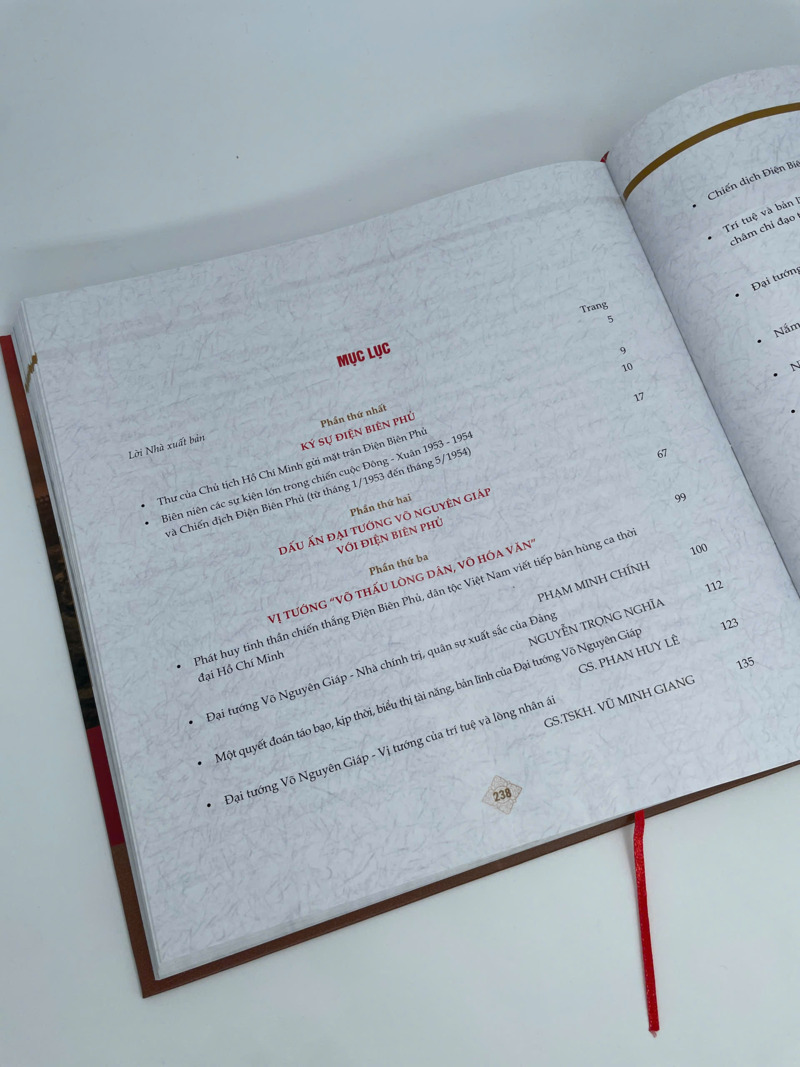 MỤC LỤC
Trang
Lời Nhà xuất bản 5
Phần thứ nhất
KÝ SỰ ĐIỆN BIÊN PHỦ 9
• Thư của Chủ tịch Hồ Chí Minh gửi mặt trận Điện Biên Phủ 10
• Biên niên các sự kiện lớn trong chiến cuộc Đông - Xuân 1953 - 1954
và Chiến dịch Điện Biên Phủ (từ tháng 1/1953 đến tháng 5/1954) 17
Phần thứ hai
DẤU ẤN ĐẠI TƯỚNG VÕ NGUYÊN GIÁP
VỚI ĐIỆN BIÊN PHỦ 67
Phần thứ ba
VỊ TƯỚNG "VÕ THẤU LÒNG DÂN, VÕ HÓA VĂN" 99
• Phát huy tinh thần chiến thắng Điện Biên Phủ, dân tộc Việt Nam viết tiếp bản hùng ca thời
đại Hồ Chí Minh 100
PHẠM MINH CHÍNH
• Đại tướng Võ Nguyên Giáp - Nhà chính trị, quân sự xuất sắc của Đảng 112
NGUYỄN TRỌNG NGHĨA
• Một quyết đoán táo bạo, kịp thời, biểu thị tài năng, bản lĩnh của Đại tướng Võ Nguyên Giáp 123
GS. PHAN HUY LÊ
• Đại tướng Võ Nguyên Giáp - Vị tướng của trí tuệ và lòng nhân ái 135
GS.TSKH. VŨ MINH GIANG
238
• Chiến dịch Điện
• Trí tuệ và bản
châm chỉ đạo
• Đại tướng
• Nắm